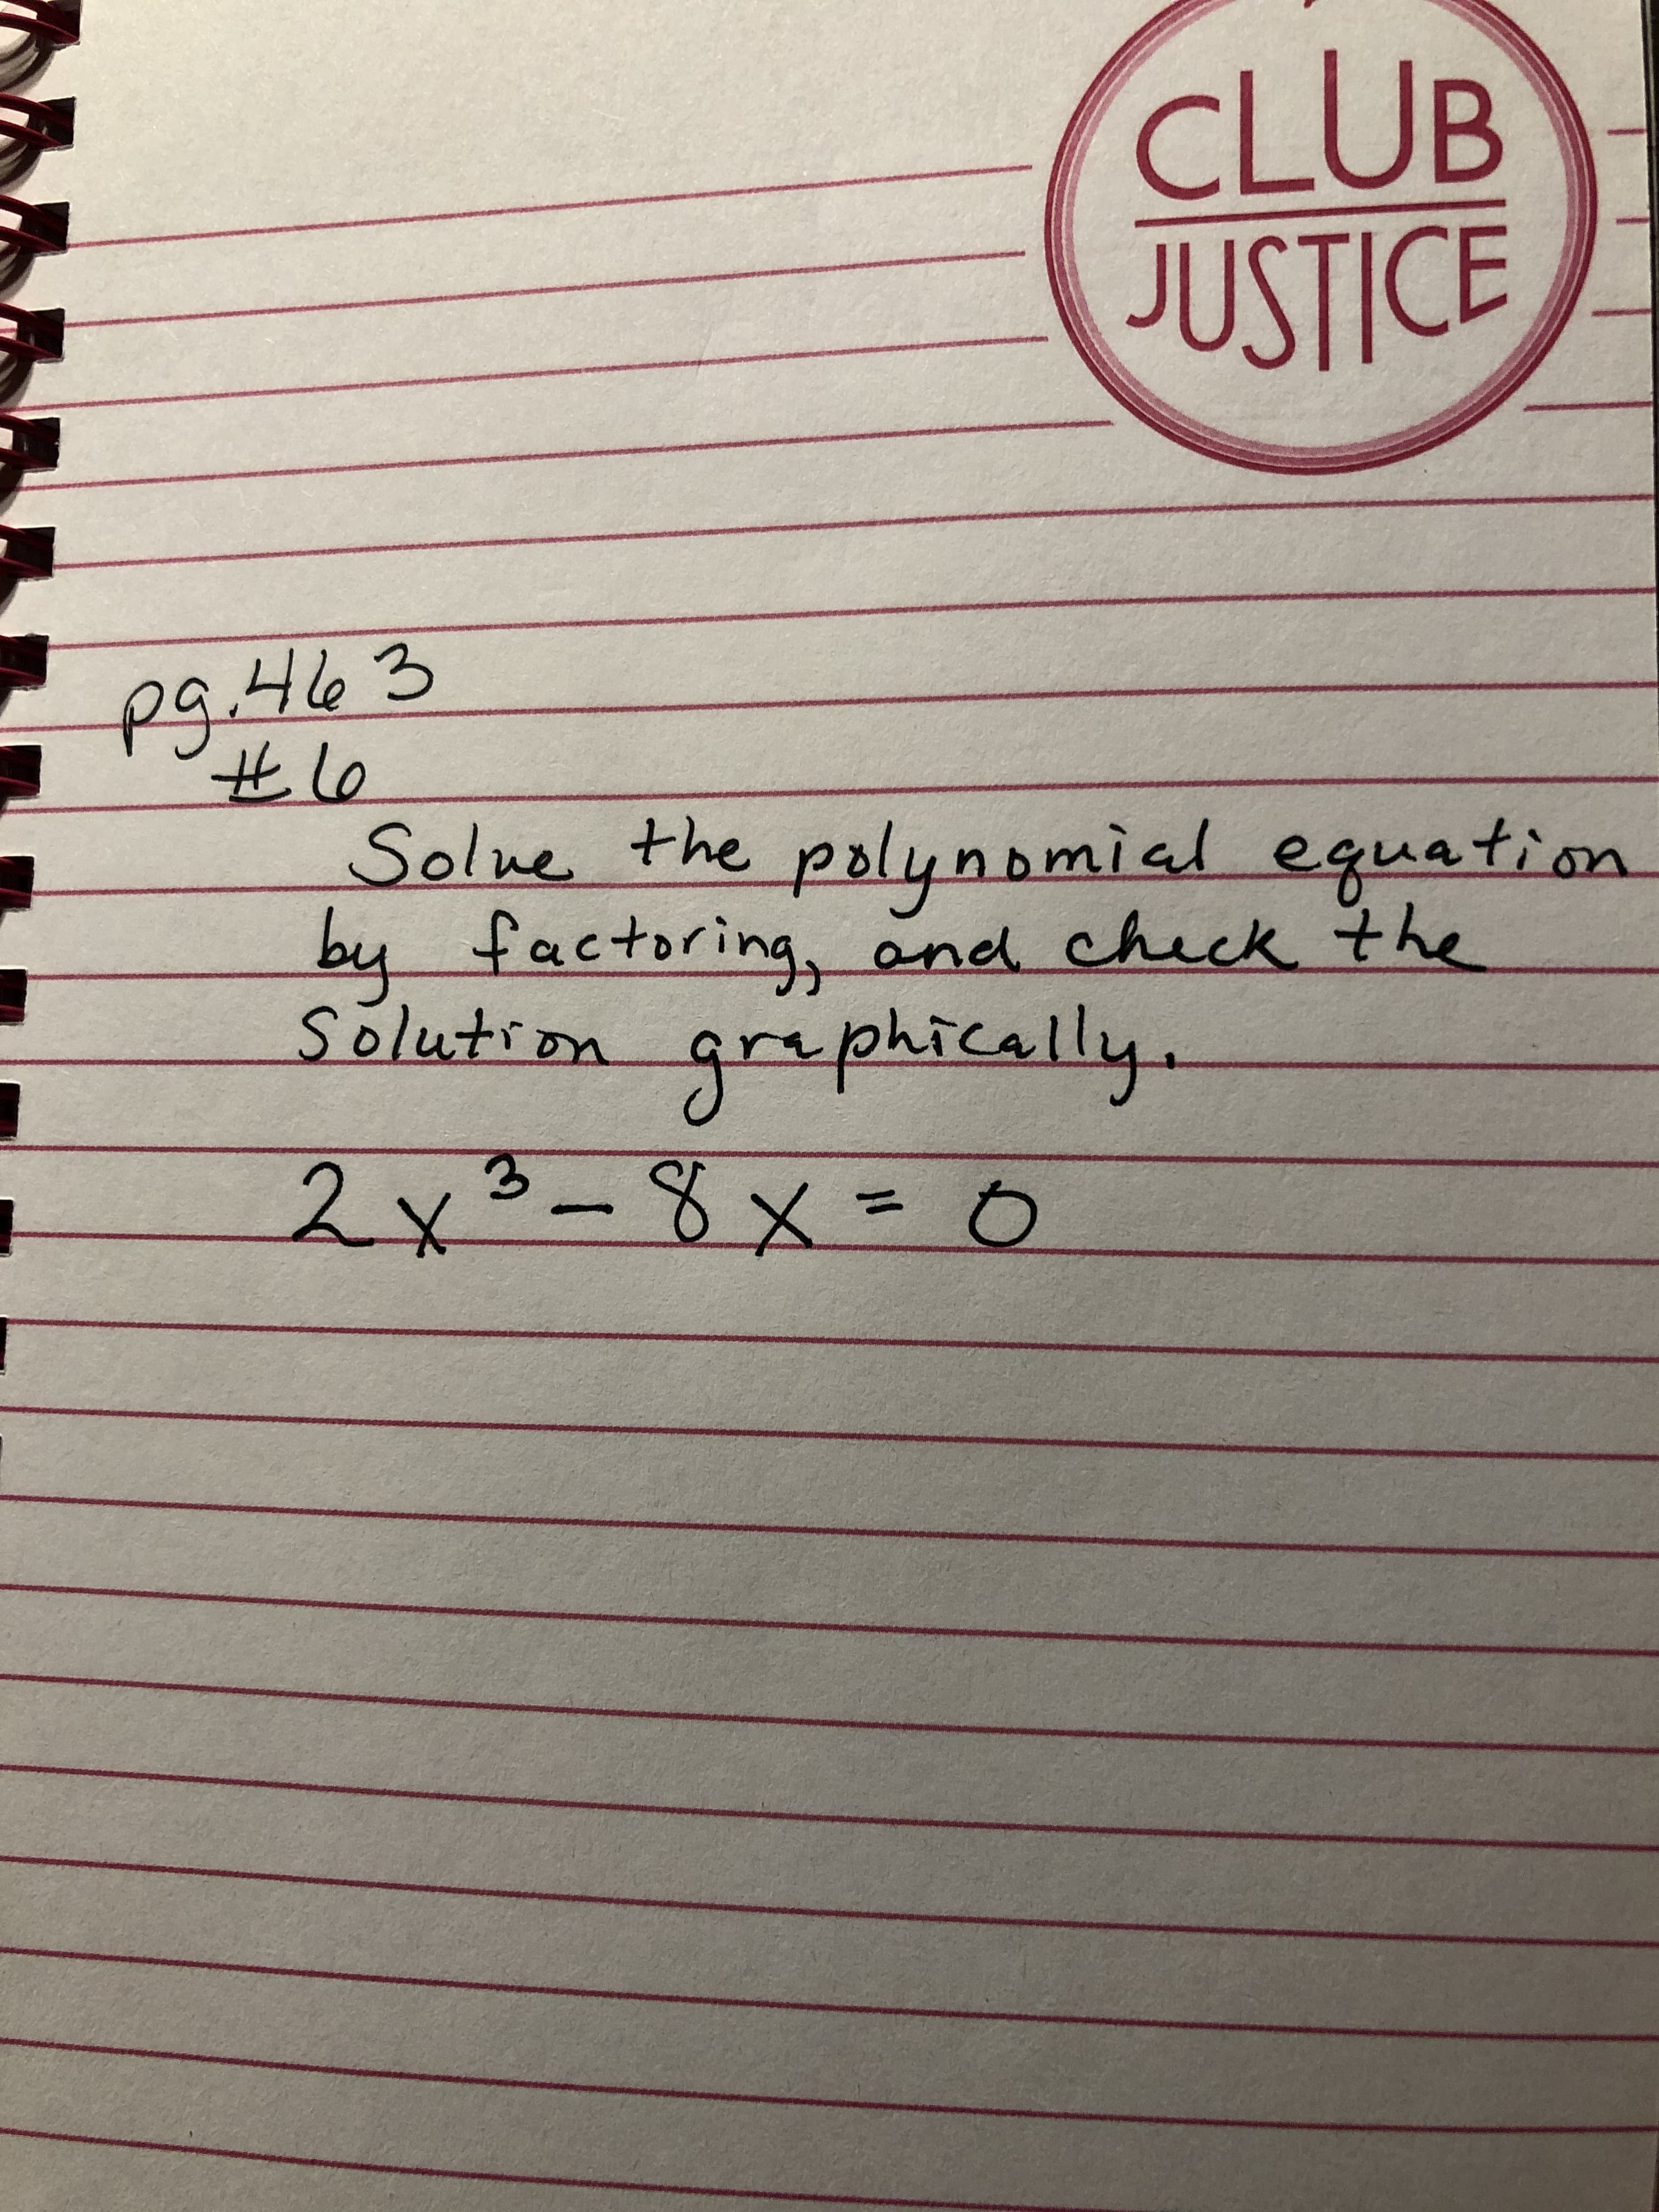 CLUB
JUSTICE
pg. 463
#6
Solve the polynomial equation
by factoring, and check the
Solution graphically.
2x³ - 8x = 0